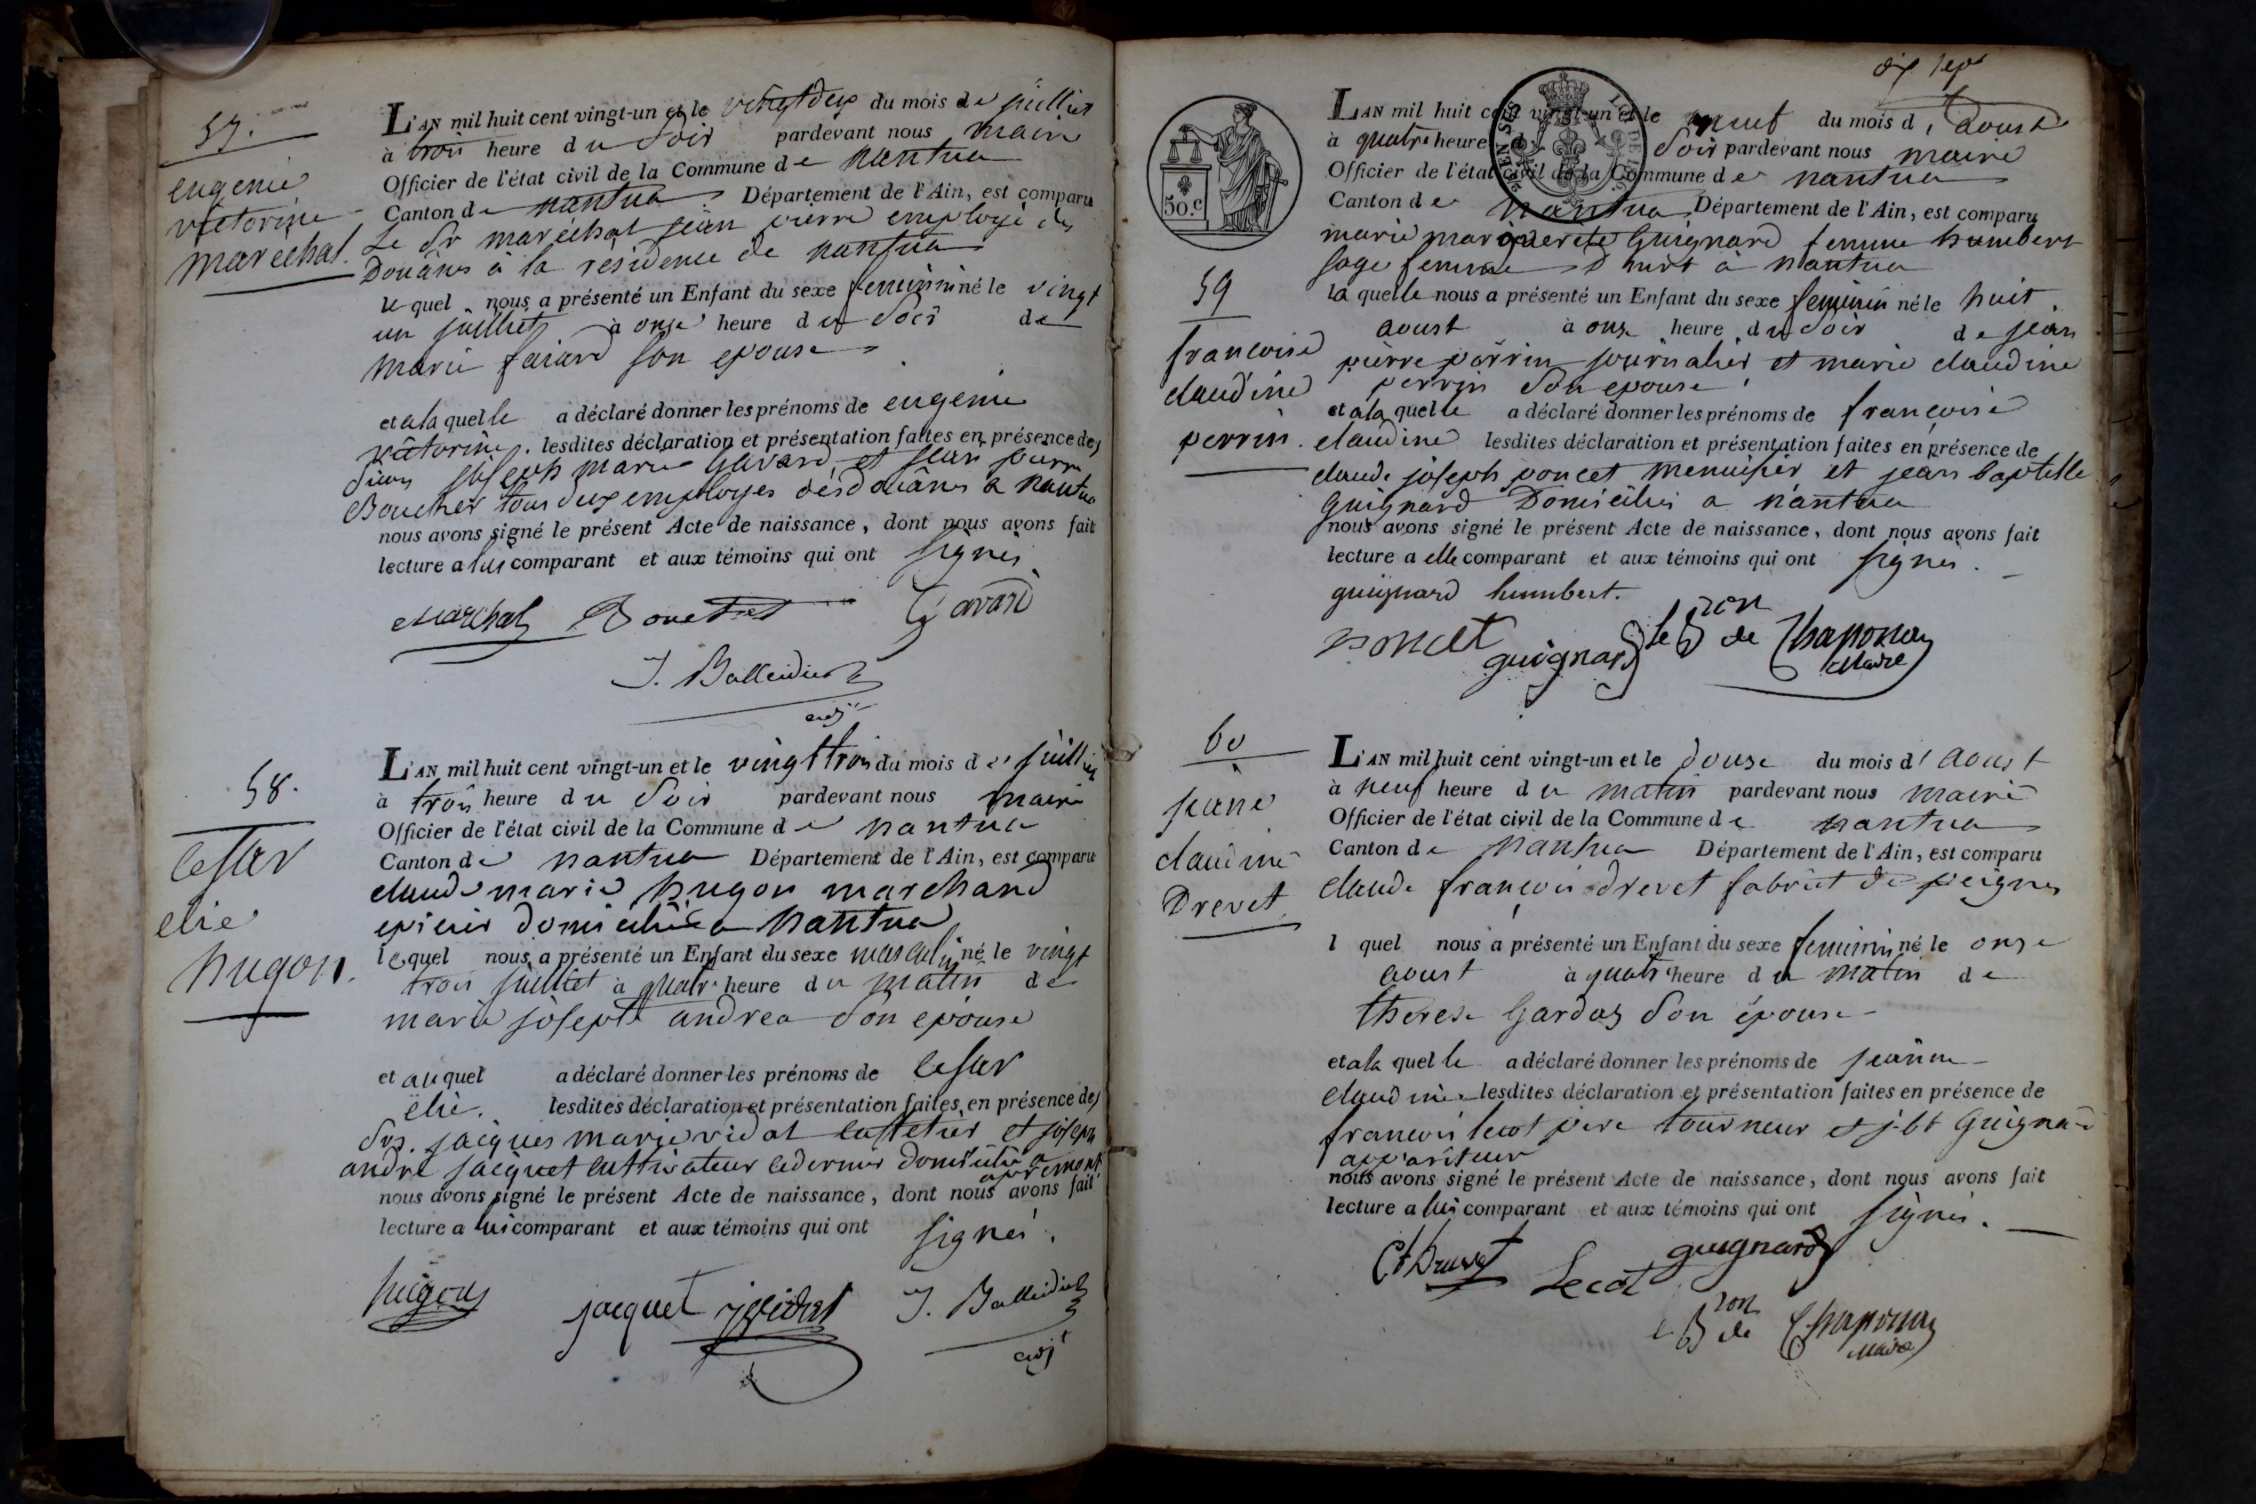 57.
eugenie
victorine
marechal.
L'AN mil huit cent vingt-un et le vingtdeux du mois de juillet
à trois heure du soir pardevant nous maire
Officier de l'état civil de la Commune de nantua
Canton de nantua Département de l'Ain, est comparu
Le Sr marechal jean pierre employé des
Douânes à la résidence de nantua
le quel nous a présenté un Enfant du sexe feminin né le vingt
un juillet à onze heure du soir de
marie faiard son epouse
et a la quelle a déclaré donner les prénoms de eugenie
victorine. lesdites déclaration et présentation faites en présence des
sieurs joseph marie Gavard et jean pierre
Boucher tous deux employés des douânes a nantua
nous avons signé le présent Acte de naissance, dont nous avons fait
lecture a lui comparant et aux témoins qui ont signés
Marchal Gavard
J. Balleidier
adj
58.
cesar
elie
hugon.
L'AN mil huit cent vingt-un et le vingt trois du mois de juillet
à trois heure du soir pardevant nous maire
Officier de l'état civil de la Commune de nantua
Canton de nantua Département de l'Ain, est comparu
claude marie hugon marchand
epicier domicilié a nantua
le quel nous a présenté un Enfant du sexe masculin né le vingt
trois juillet à quatre heure du matin de
marie josephte andrea son epouse
et au quel a déclaré donner les prénoms de cesar
elie. lesdites déclaration et présentation faites en présence des
Srs. jacques marie vidal cafetier et joseph
andré jacquet cultivateur ce dernier domicilié a
apremont
nous avons signé le présent Acte de naissance, dont nous avons fait
lecture a lui comparant et aux témoins qui ont signés.
hugon jacquet vidal J. Balleidier
adjt
dix sept
50.C
59
francoise
claudine
perrin.
L'AN mil huit cent vingt-un et le neuf du mois d'aoust
à quatre heure du soir pardevant nous maire
Officier de l'état civil de la Commune de nantua
Canton de nantua Département de l'Ain, est comparu
marie marguerite Guignard femme humbert
sage femme à nantua
la quelle nous a présenté un Enfant du sexe feminin né le huit
aoust à onze heure du soir de jean
pierre perrin journalier et marie claudine
perrin son epouse
et a la quelle a déclaré donner les prénoms de françoise
claudine lesdites déclaration et présentation faites en présence de
claude joseph poncet menuisier et jean baptiste
Guignard Domiciliés a nantua
nous avons signé le présent Acte de naissance, dont nous avons fait
lecture a elle comparant et aux témoins qui ont signés.
guignard humbert.
poncet guignard le Bon de Chaponay
Maire
60
jeane
claudine
Drevet
L'AN mil huit cent vingt-un et le douze du mois d'aoust
à neuf heure du matin pardevant nous maire
Officier de l'état civil de la Commune de nantua
Canton de nantua Département de l'Ain, est comparu
claude françois drevet fabrict de peignes
l quel nous a présenté un Enfant du sexe feminin né le onze
aoust à quatre heure du matin de
therese Gardas son épouse
et a la quelle a déclaré donner les prénoms de jeanne
claudine lesdites déclaration et présentation faites en présence de
françois lecot pere tourneur et j. bt Guignard
appariteur
nous avons signé le présent Acte de naissance, dont nous avons fait
lecture a lui comparant et aux témoins qui ont signés.
Lecot guignard
le Bon de Chaponay
Maire